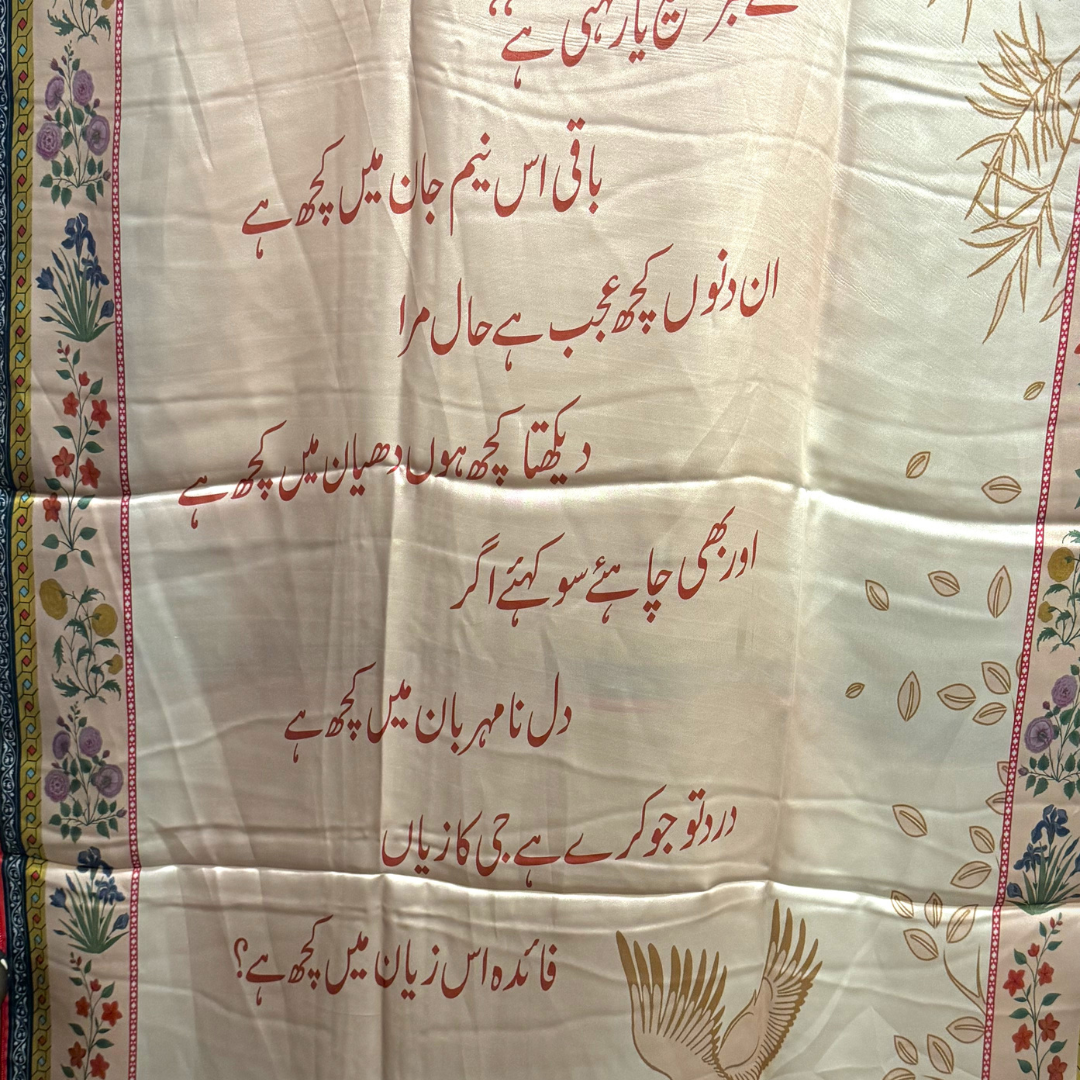 تیغ یار رہتی ہے
باقی اس نیم جان میں کچھ ہے
ان دنوں کچھ عجب ہے حال مرا
دیکھتا کچھ ہوں دھیان میں کچھ ہے
اور بھی چاہئے سو کہئے اگر
دل نامہربان میں کچھ ہے
درد تو جو کرے ہے جی کا زیاں
فائدہ اس زیان میں کچھ ہے؟